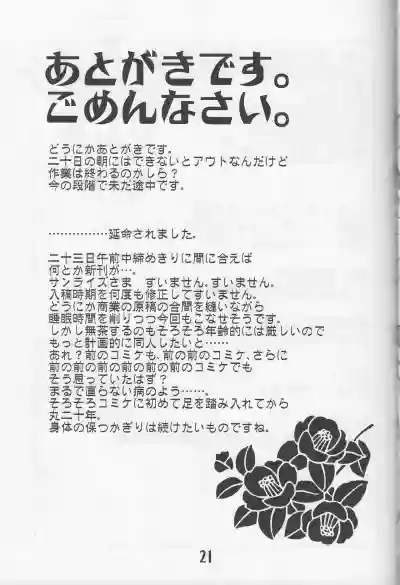 あとがきです。
ごめんなさい。
どうにかあとがきです。
二十日の朝にはできないとアウトなんだけど
作業は終わるのかしら？
今の段階で未だ途中です。
……………延命されました。
二十三日午前中締めきりに間に合えば
何とか新刊が…。
サンライズさま　すいません。すいません。
入稿時期を何度も修正してすいません。
どうにか商業の原稿の合間を縫いながら
睡眠時間を削りつつ今回もこなせそうです。
しかし無茶するのもそろそろ年齢的には厳しいので
もっと計画的に同人したいと……
あれ？前のコミケも、前の前のコミケ、さらに
前の前の前の前の前の前のコミケでも
そう思っていたはず？
まるで直らない病のよう……。
そろそろコミケに初めて足を踏み入れてから
丸二十年。
身体の保つかぎりは続けたいものですね。
21